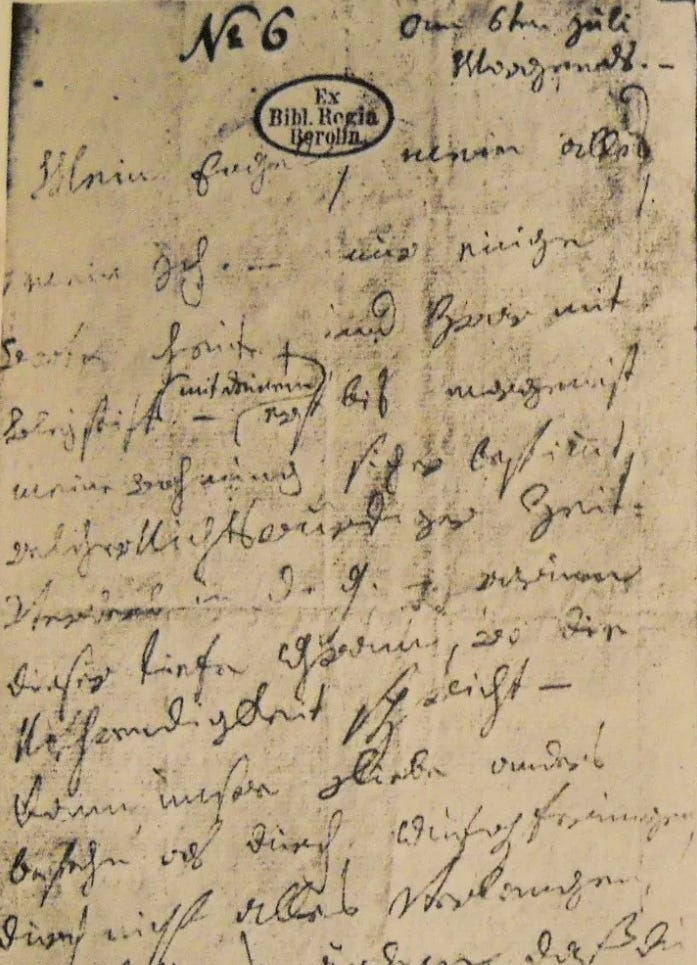 No 6
am 6ten Juli
Morgends. –
Ex
Bibl. Regia
Berolin.
Mein Engel, mein alles,
mein Ich. – nur einige
Worte heute, und zwar mit
Bleystift – (mit deinem)
erst bis morgen ist
meine Wohnung sicher bestimmt,
welcher Nichtswürdiger Zeit=
Verderb in d. g. – warum
dieser tiefe Gram, wo die
Nothwendigkeit spricht –
Kann unsre Liebe anders
bestehn als durch Aufopferungen,
durch nicht alles verlangen,
ändern, daß du